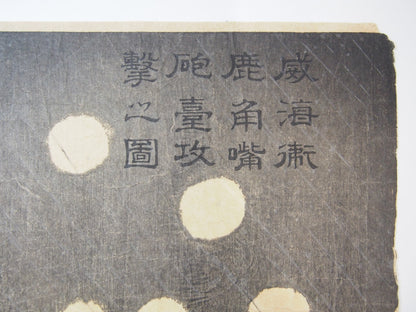 威海衛
鹿角嘴
砲臺攻
擊之圖